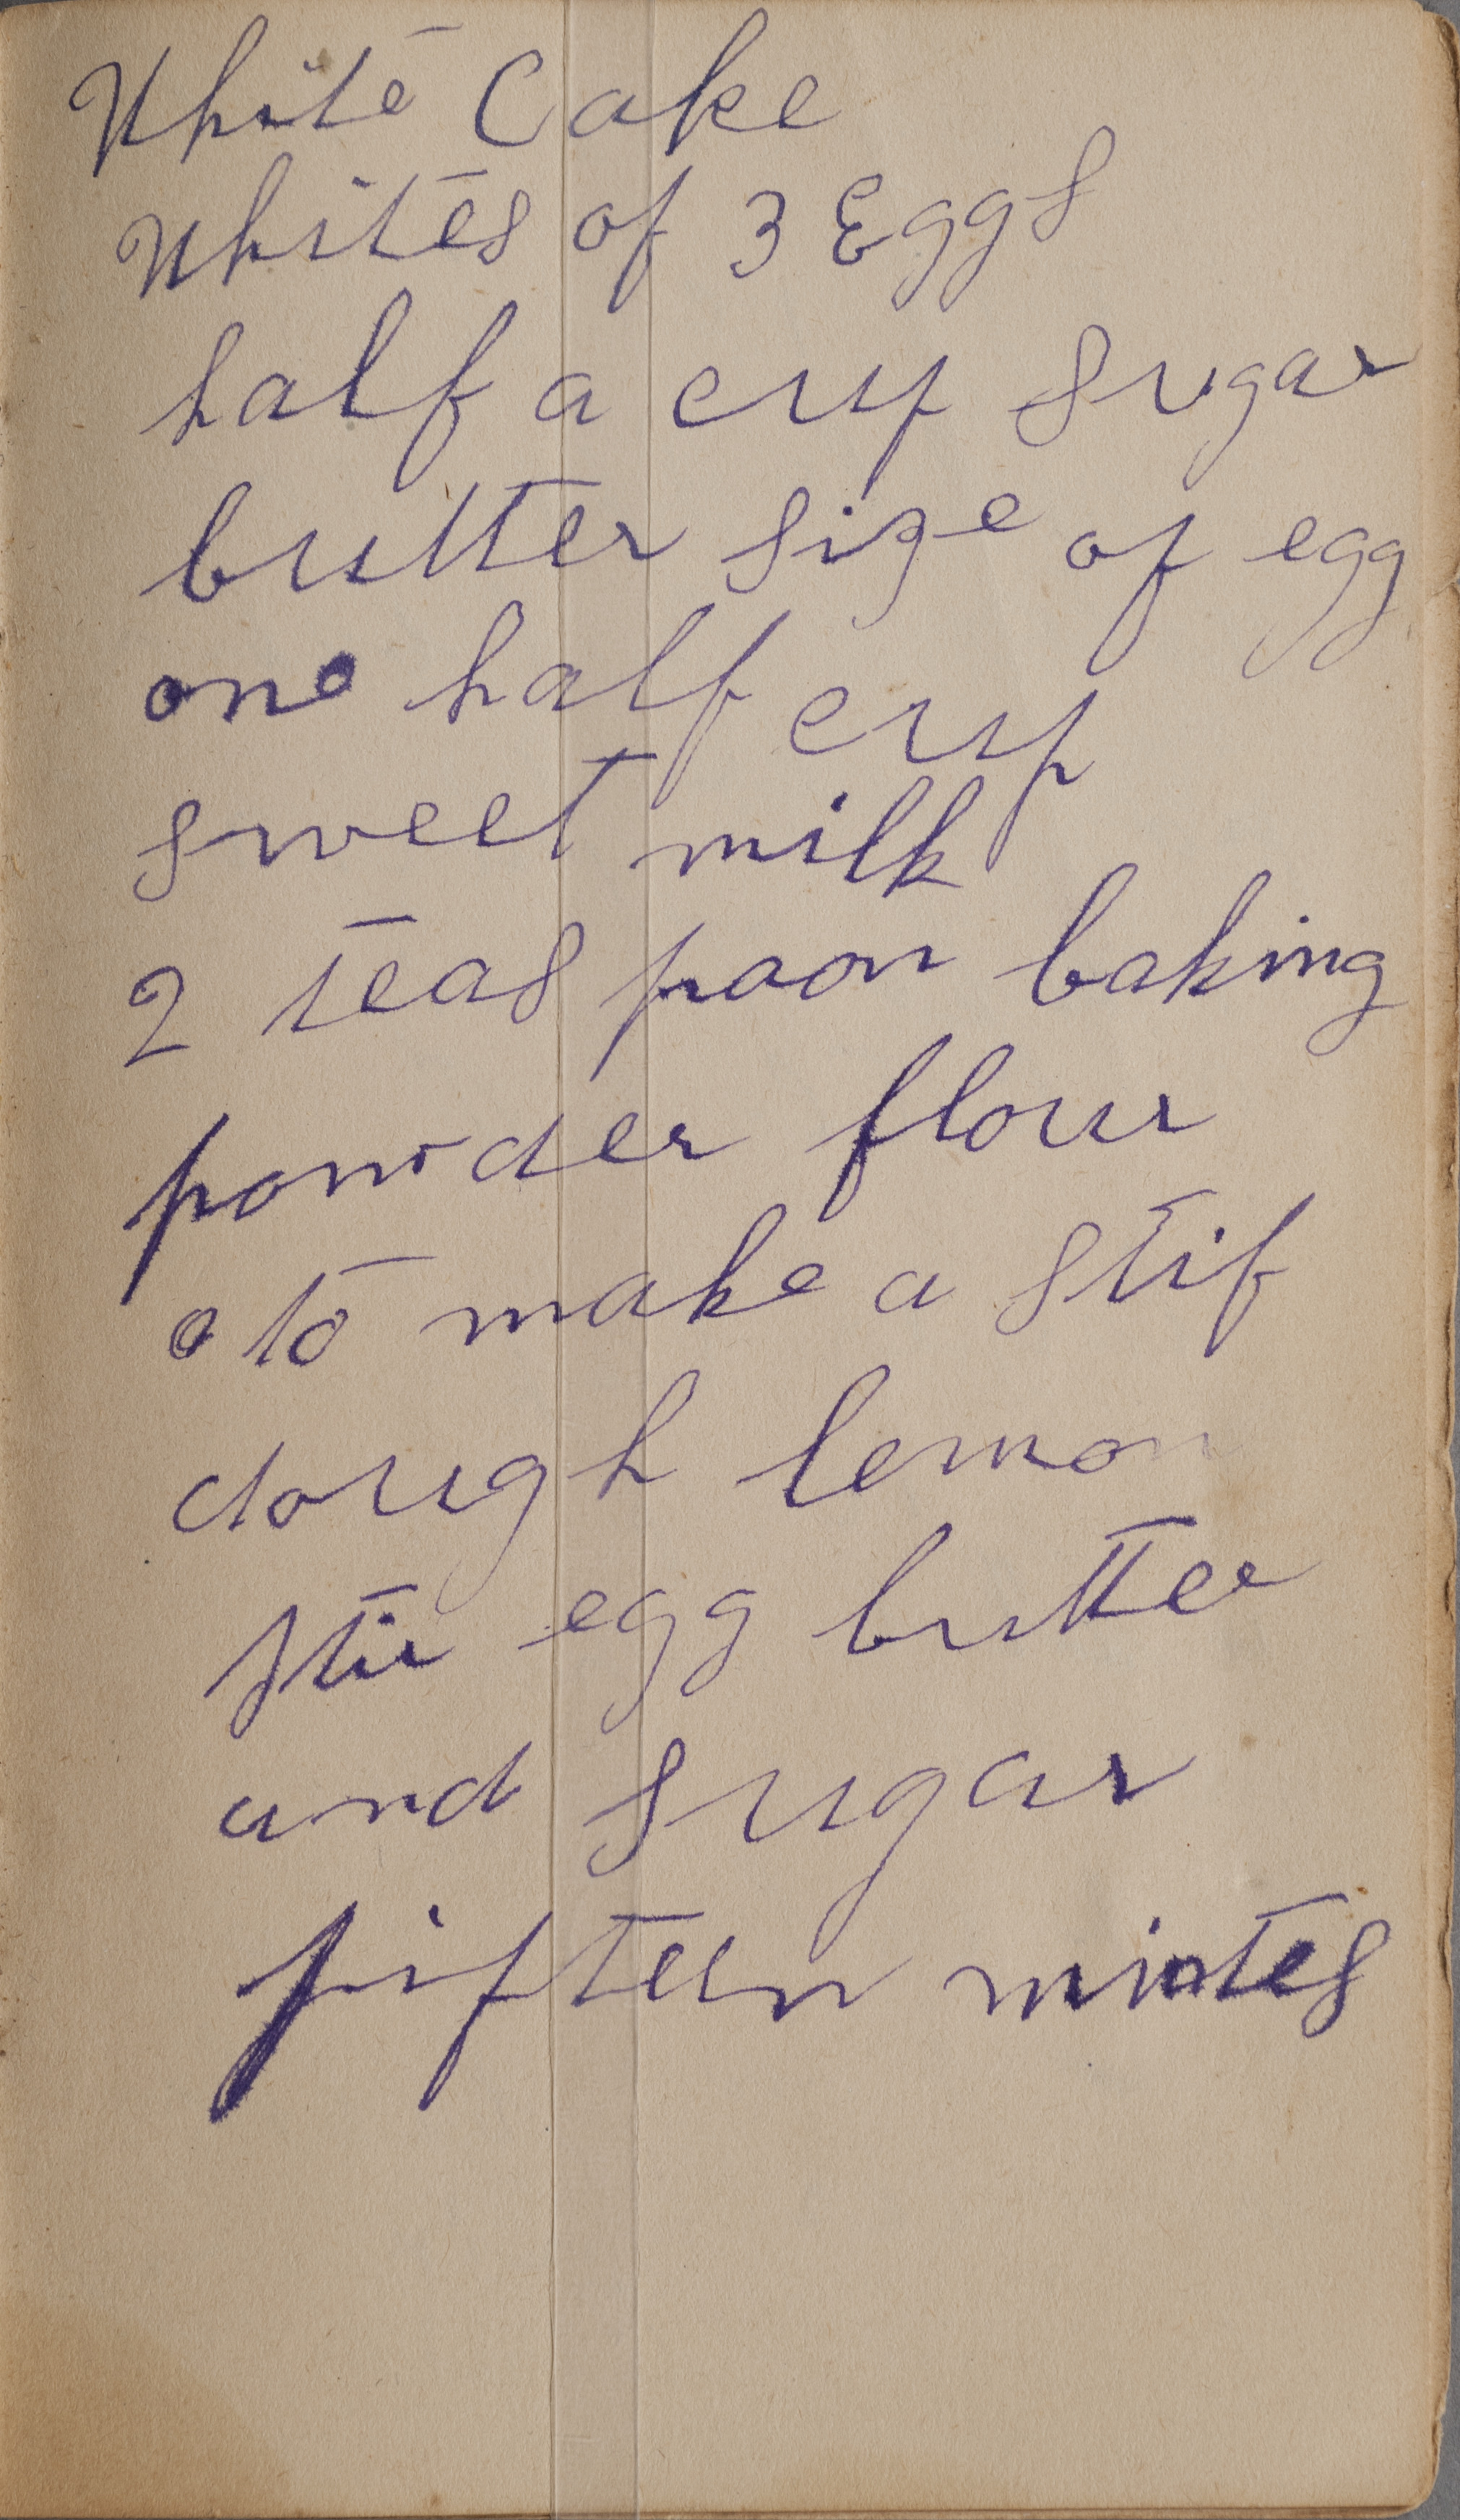 White Cake
Whites of 3 Eggs
half a cup sugar
butter size of egg
one half cup
sweet milk
2 teas poon baking
powder flour
to make a stif
dough lemon
stir egg butter
and sugar
fifteen mintes